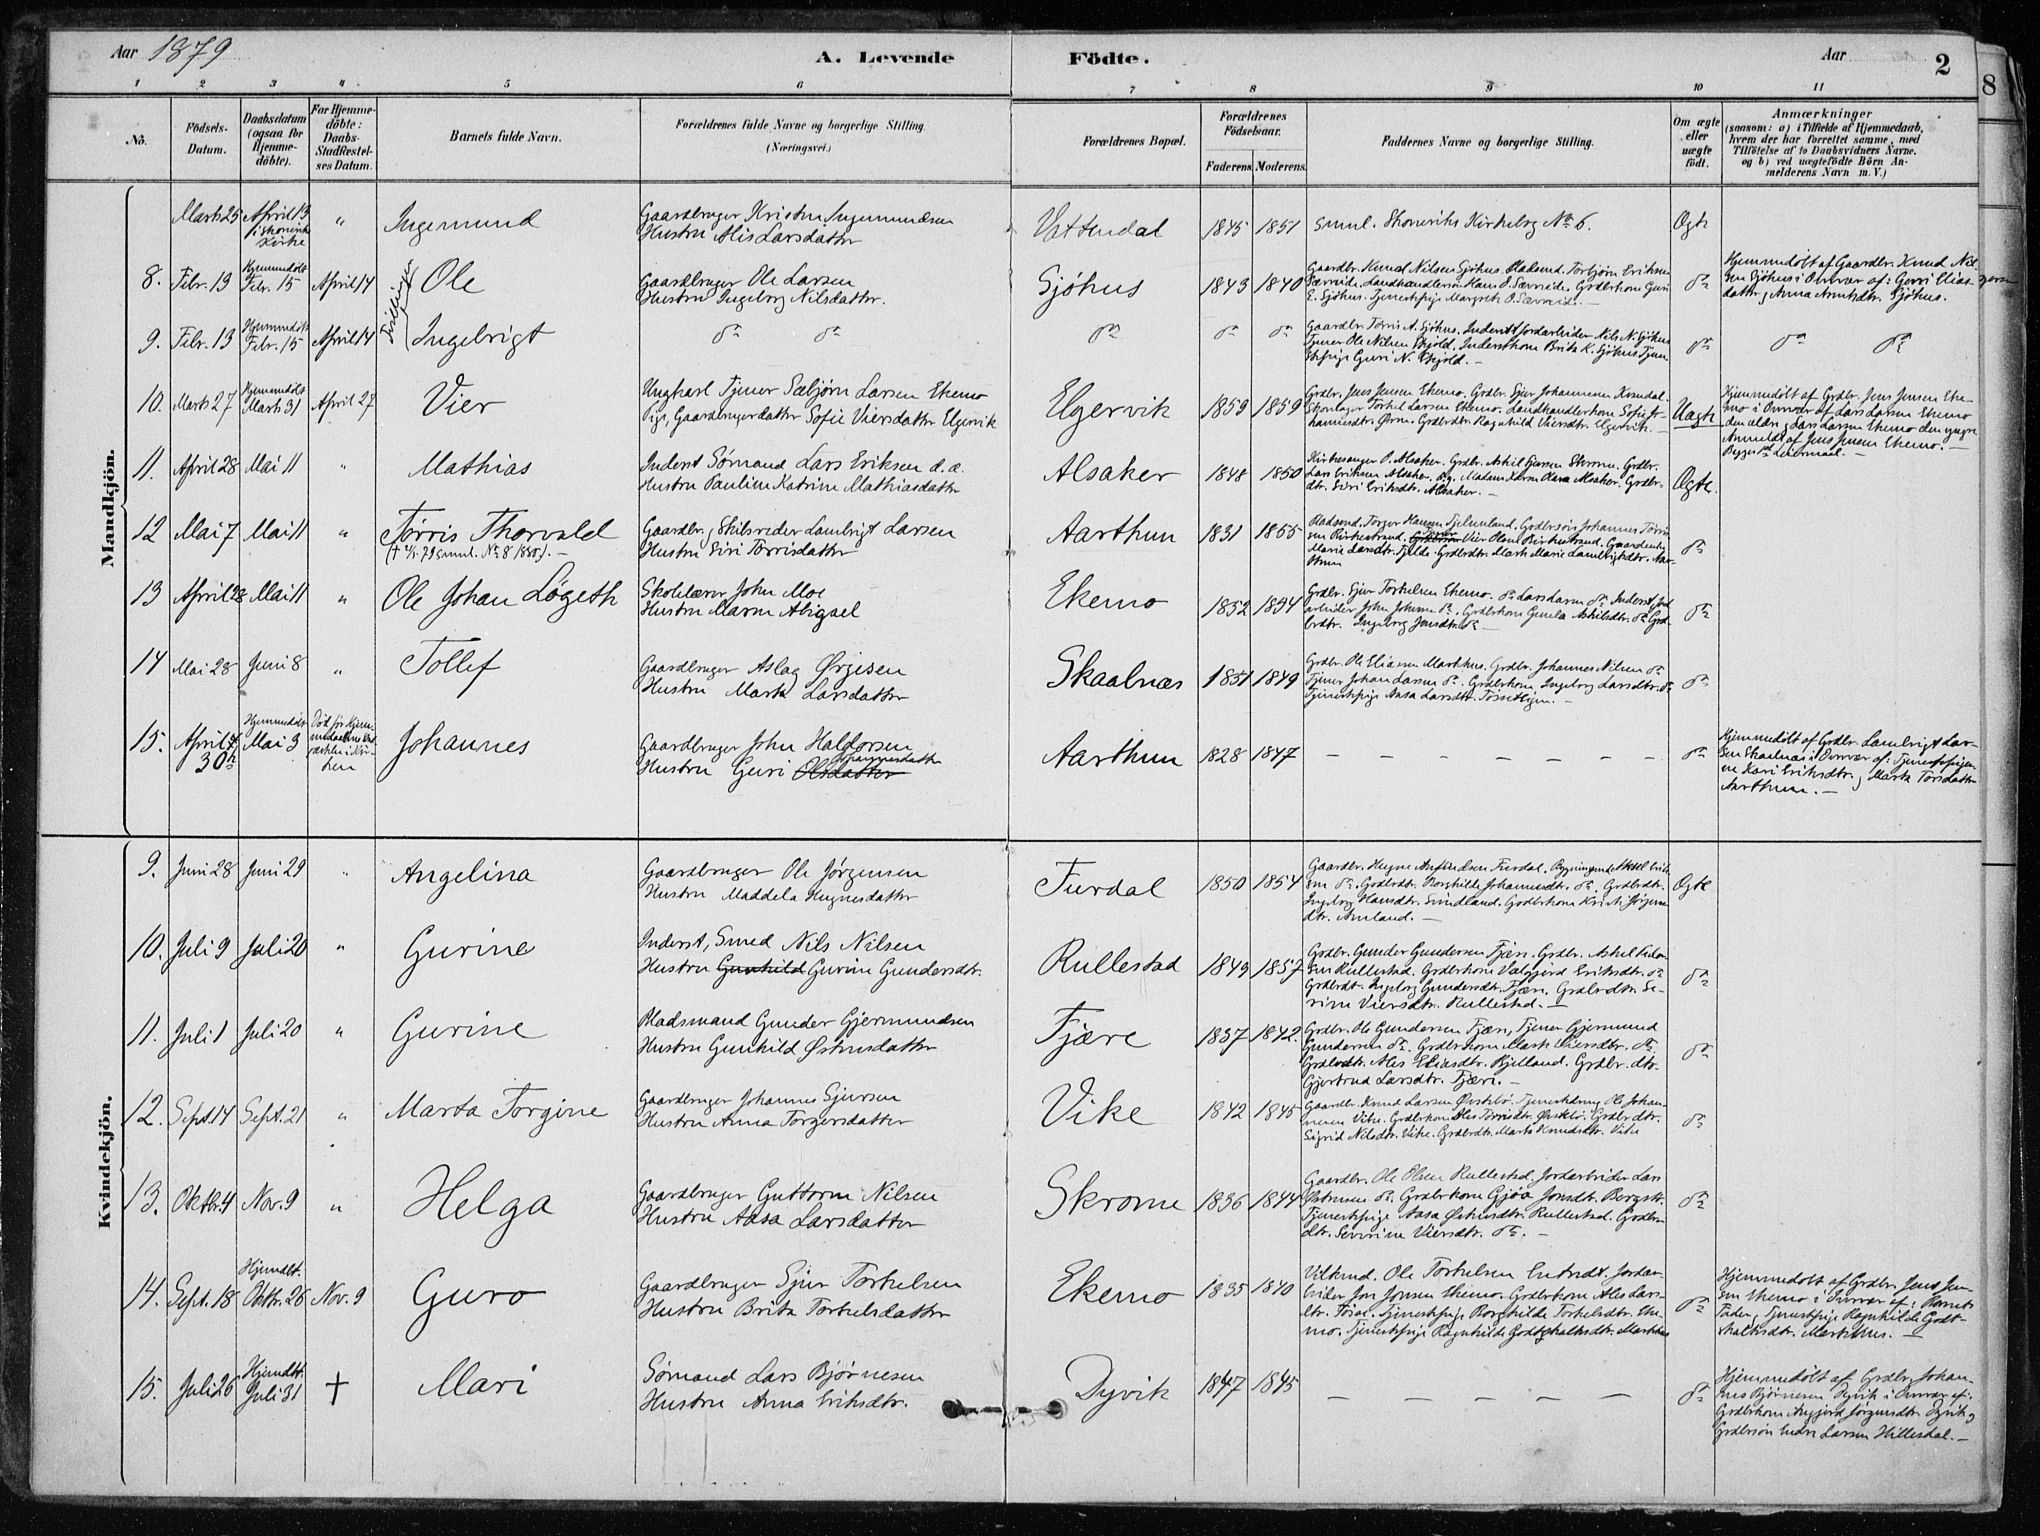 Aar 1879
A. Levende Födte.
Aar
2
8
1 2 3 4 5 6 7 8 9 10 11
No.
Födsels-Datum.
Daabsdatum (ogsaa for Hjemme-döbte).
For Hjemme-döbte: Daabs-Stadfæstel-ses Datum.
Barnets fulde Navn.
Forældrenes fulde Navne og borgerlige Stilling (Næringsvei.)
Forældrenes Bopæl.
Forældrenes Födselsaar.
Faderens. Moderens.
Faddernes Navne og borgerlige Stilling.
Om ægte eller uægte födt.
Anmærkninger
(saasom: a) i Tilfælde af Hjemmedaab, hvem der har forrettet samme, med Tilföielse af to Daabsvidners Navne, og b) ved uægtefödte Börn An-melderens Navn m. V.)
Mandkjön.
Marts 25 April 13 i Skonevik Kirke " Ingemund
Gaardbruger Kristen Ingemundsen
Hustru Alis Larsdatter
Vattendal 1845 1851 Smnl. Skoneviks Kirkebog No 6. Ægte
8. Febr. 13 Hjemmedöbt Febr. 15 April 14 Tvillinger Ole
Gaardbruger Ole Larsen
Hustru Ingeborg Nilsdatter.
Sjöhus 1843 1840
Gaardbr. Knud Nilsen Sjöhus. Pladsmd. Torbjörn Eriksen
E. Sjöhus. Tjenestepige Margrete O. Særveide. —
do
Hjemmedöbt af Gaardbr. Knud Nil-
sen Sjöhus i Overvær af: Guri Elias-
datter og Anna Arntsdtr. Sjöhus.
9. Febr. 13 Hjemmedöbt Febr. 15 April 14 Ingebrigt
do do do do do
Gaardbr. Torris A. Sjöhus. Inderst Jordarbeider Nils N. Sjöhus
Tjener Ole Nilsen Skjold. Inderstkone Brita K. Sjöhus Tjene-
stepige Guri N. Skjold. —
do do do
10. Marts 27 Hjemmedöbt Marts 31 April 27 Vier
Ungkarl Tjener Sæbjörn Larsen Ekemo
Pige, Gaardbrugerdatter Sofie Viersdatter Elgervik
Elgervik 1859 1859
Grdbr. Jens Jensen Ekemo. Grdbr. Sjur Johannesen
Torkel Larsen Ekemo. Landhandlerkone Sofie Jo-
hannesdtr. Ørne. Grdbrdtr. Ragnhild Viersdtr. Elgervik. —
Uægte
Hjemmedöbt af Grdbr. Jens Jensen Eke-
mo i Overvær af Lars Larsen Ekemo
den ældre og Lars Larsen Ekemo den yngre
Anmeldt af Jens Jensen Ekemo. —
Begges 1ste Leiermaal. —
11. April 28 Mai 11 " Mathias
Inderst Sömand Lars Eriksen d. æ.
Hustru Pauline Katrine Mathiasdatter
Alsaker 1848 1850
Kirkesanger P. Alsaker. Grdbr. Askil Skromme. Grdbr.
Lars Eriksen Alsaker d. y. Madam Karen Olava Alsaker. Grdbr-
dtr. Siri Eriksdtr. Alsaker. —
Ægte.
12 Mai 7 Mai 11 " Torris Thorvald
Gaardbr. og Skilsreder Lambrigt Larsen
Hustru Siri Torrisdatter
Aarthun 1831 1855
Marie Larsdtr. Tjelde. Grdbrdtr. Marta Marie Lambrigtsdtr. Aar-
thun
do
13 April 28 Mai 11 " Ole Johan Lögeth
Skolelærer John Moe
Hustru Maren Abigael
Ekemo 1852 1854
Grdbr. Sjur Torkelsen Ekemo. do Lars Larsen do Inderst, Jord-
arbeider John Johnsen do. Grdbrkone Gunla Askilsdtr. do Grd-
brdtr. Ingeborg Jensdtr. do —
do
14 Mai 28 Juni 8 " Tollef
Gaardbruger Aslag Ørjesen
Hustru Marta Larsdatter
Skaalnæs 1851 1849
Grdbr. Ole Eliasen Markhus. Grdbr. Johannes Nilsen do
Tjener Johan Larsen do. Grdbrkone Ingeborg Larsdtr. do
Tjenestepige Aasa Larsdtr.
do
15. April 30te Hjemmedöbt Mai 3 Johannes
Gaardbruger John Haldorsen
Hustru Guri Olsdatter Johannesdatter
Aarthun 1828 1847 — — — — — — — do
Hjemmedöbt af Grdbr. Lambrigt Lar-
sen Skaalnæs i Overvær af: Tjenestepiger-
ne Kari Eriksdtr. og Marta Torsdatter
Aarthun. —
Kvindekjön.
9. Juni 28 Juni 29 " Angelina
Gaardbruger Ole Jörgensen
Hustru Maddela Hugnesdatter
Furdal 1850 1854
Ingeborg Hansdtr. Sundland. Grdbrkone Kristi Jörgens-
dtr. Amland. —
Ægte
10. Juli 9 Juli 20 " Gurine
Inderst, Smed Nils Nilsen
Hustru Gunhild Gurine Gundersdtr.
Rullestad 1849 1857
Grdbr. Gunder Gundersen Fjære. Grdbr. Askel
sen Rullestad. Grdbrkone Valgjerd Eriksdtr. do
Grdbrdt. Ingeborg Gundersdtr. Fjære. Grdbrdtr. Se-
vrine Viersdtr. Rullestad. —
do
11. Juli 1 Juli 20 " Gurine
Pladsmand Gunder Gjermundsen
Hustru Gunhild Østensdatter
Fjære 1837 1842.
Grdbr. Ole Gundersen Fjære, Tjener Gjermund
Gundersen do. Grdbrkone Marta Viersdtr. do.
Grdbrdtr. Alis Eliasdtr. Bjelland. Grdbr. dtr.
Gjertrud Larsdtr. Fjære. —
do
12. Sept. 14 Sept. 21 " Marta Torgine
Gaardbruger Johannes Sjursen
Hustru Anna Torgersdatter
Vike 1842 1845
Gaardbr. Knud Larsen Ørskebö. Tjenestedreng Ole Johan-
nesen Vike. Grdbrkone Alis Torrisdtr. Ørskebö. Grdbrdtr.
Sigrid Nilsdtr. Vike. Grdbrdtr. Marta Knudsdtr. Vike
do
13. Oktbr. 4 Nov. 9 " Helga
Gaardbruger Guttorm Nilsen
Hustru Aasa Larsdatter
Skromme 1836 1844
Gaardbr. Ole Olsen Rullestad. Jordarbeider Lars
Østensen do. Grdbrkone Gjöa Jonsdtr. Bergstö.
Tjenestepige Aasa Østensdtr. Rullestad. Grdbr-
dtr. Sevrine Viersdtr. do. —
do
14. Sept. 18 Hjemdbt. Oktbr. 26 Nov. 9 Guro
Gaardbruger Sjur Torkelsen
Hustru Brita Torkelsdatter
Ekemo 1835 1840
beider Jon Jonsen Ekemo. Grdbrkone Alis Lars-
dtr. Tjenestepige Borghilde Torkelsdtr. Eke-
mo. Tjenestepige Ragnhilde Godtskalksdtr. Markhus
do
Hjemmedöbt af Grdbr. Jens Jen-
sen Ekemo i Overvær af: Barnets
Fader og Tjenestepige Ragnhilde Godt-
skalksdtr. Markhus. —
15. Juli 26 Hjemdbt. Juli 31 † Mari
Sömand Lars Bjørnesen
Hustru Anna Eriksdtr.
Dyvik 1847 1845 — — — — — do
Hjemmedöbt af Grdbr. Johan-
nes Bjørnesen Dyvik i Overvær af:
Grdbrkone Angjerd Jörgensdtr. Dyvik og
Grdbrsön Endre Larsen Hillesdal. —